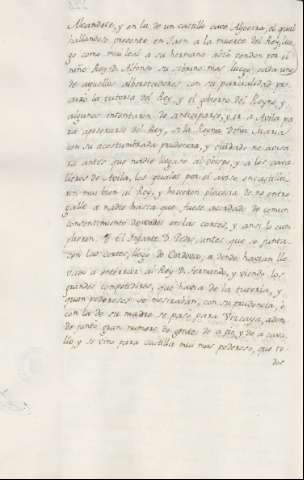 Alcaudete, y en la de un castillo cave Algezira, el qual
hallandose presente en Jaen a la muerte del Rey, lue
go como muy leal a su hermano alzó pendon por el
niño Rey D. Alfonso su sobrino: mas luego cada uno
de aquellos alborotadores con su parcialidad pro
curó la tutoria del Rey, y el gobierno del Reyno, y
algunos intentaron de anticiparse, y ir a Avila pa
ra apoderarse del Rey, si la Reyna Doña Maria
con su acostumbrada prudencia, y cuidado no avisa
ra antes que nadie llegase al obispo, y a los cava
lleros de Avila, los quales por el aviso encastilla
ron muy bien al Rey, y hicieron pleytesia de no entre
galle a nadie hasta que fuese acordado de comun
consentimiento de todos en las cortes, y ansi lo cum
plieron. Y el Infante D. Pedro, antes que se junta
sen las Cortes, luego de Cordova, a donde havian lle
vado a enterrar al Rey D. Fernando, y viendo los
grandes competidores, que havia de la tutoria, y
quan poderosos se mostraban, con su prudencia, o
con la de su madre se pasó para Vizcaya, adon
de juntó gran numero de gentes de a pie, y de a cava
llo, y se vino para Castilla muy mas poderoso, que to
dos